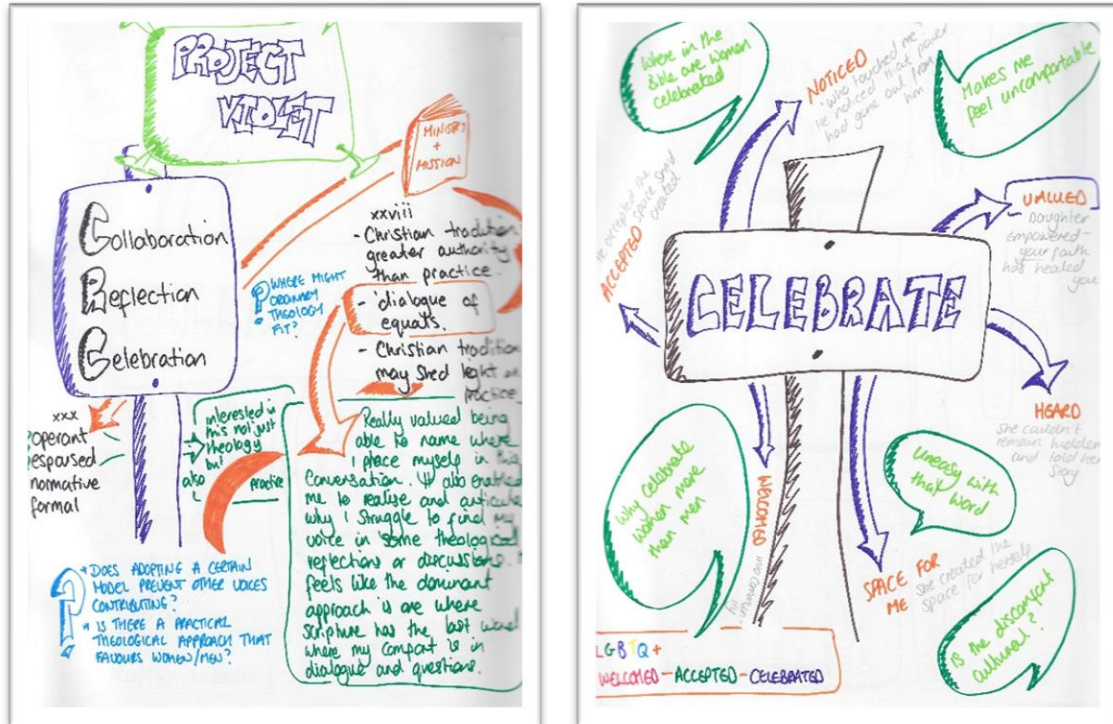 PROJECT
VIOLET
MINISTRY
+
MISSION
Collaboration
Reflection
Celebration
xxviii
- Christian tradition
greater authority
than practice.
- 'dialogue of
equals.
- Christian tradition
may shed light on
practice
WHERE MIGHT
ORDINARY
THEOLOGY
FIT?
xxx
operant
espoused
normative
formal
interested in
this not just
theology
but
also
practice
Really valued being
able to name where
I place myself in this
Conversation. It also enabled
me to realise and articulate
why I struggle to find my
voice in some theological
reflections or discussions. It
feels like the dominant
approach is one where
scripture has the last word
where my comfort is in
dialogue and questions.
* DOES ADOPTING A CERTAIN
MODEL PREVENT OTHER VOICES
CONTRIBUTING?
* IS THERE A PRACTICAL
THEOLOGICAL APPROACH THAT
FAVOURS WOMEN/MEN?
Where in the
Bible are women
celebrated
NOTICED
'Who touched me?'
He noticed that power
had gone out from
him
Makes me
feel uncomfortable
ACCEPTED
He accepted the
space she'd
created
VALUED
Daughter
empowered -
your faith
has healed
you
CELEBRATE
HEARD
she couldn't
remain hidden
and told her
story
Why celebrate
women more
than men
WELCOMED
Uneasy with
that word
SPACE FOR
ME
She created the
space for herself
Is the discomfort
cultural?
LGBTQ+
WELCOMED - ACCEPTED - CELEBRATED